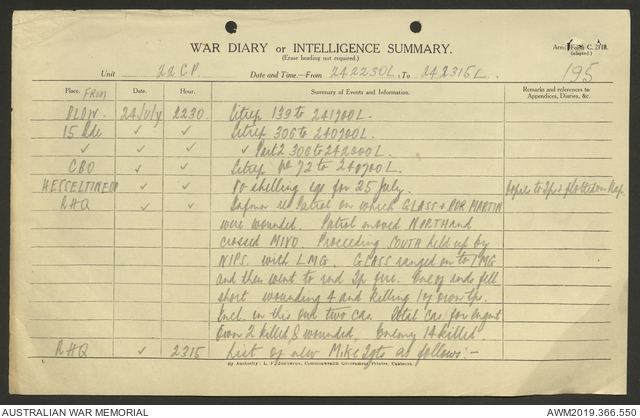 WAR DIARY or INTELLIGENCE SUMMARY.
(Erase heading not required.)
Army Form C. 2118.
(adapted.)
Unit 22 C.P. Date and Time:—From 242230L To 242315L. 195
Place. FROM Date. Hour. Summary of Events and Information. Remarks and references to Appendices, Diaries, &c.
24 July 2230 Sitrep 139 to 241900L.
15 Bde ✓ ✓ Sitrep 306 to 240900L.
✓ ✓ ✓ ✓ Part 2 306 to 242000L
CBO ✓ ✓ Sitrep No 72 to 240700L.
✓ ✓ No shelling for 25 July.
RHQ ✓ ✓ re Patrol on which GLASS + BDR MARTIN
were wounded. Patrol moved NORTH and
crossed MIVO. Proceeding SOUTH held up by
NIPS. with LMG. GLASS ranged on to LMG
and then went to rnd fire. One of rnds fell
short wounding 4 and killing 1 of own tps.
Incl. in this own two cas. Total cas. for
Own 2 killed, 8 wounded, Enemy 14 killed.
RHQ ✓ 2315 List of new Mike Tgts as follows:-
By Authority: L. F. Johnston, Commonwealth Government Printer, Canberra.
AUSTRALIAN WAR MEMORIAL
AWM2019.366.550